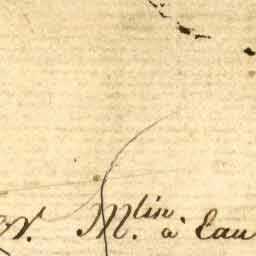 R. M.lin à Eau